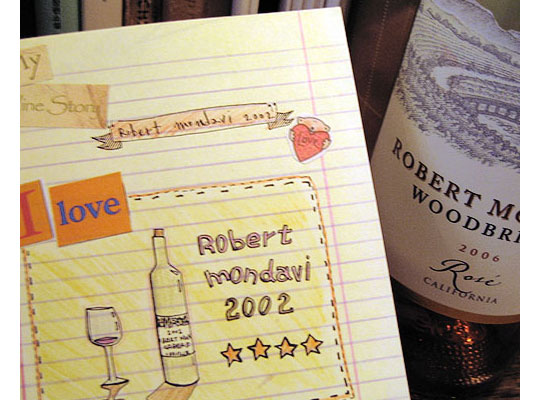 My
Wine Story
Robert mondavi 2002
Love
I love
Robert
mondavi
2002
ROBERT MO
WOODBRI
2006
Rosé
CALIFORNIA